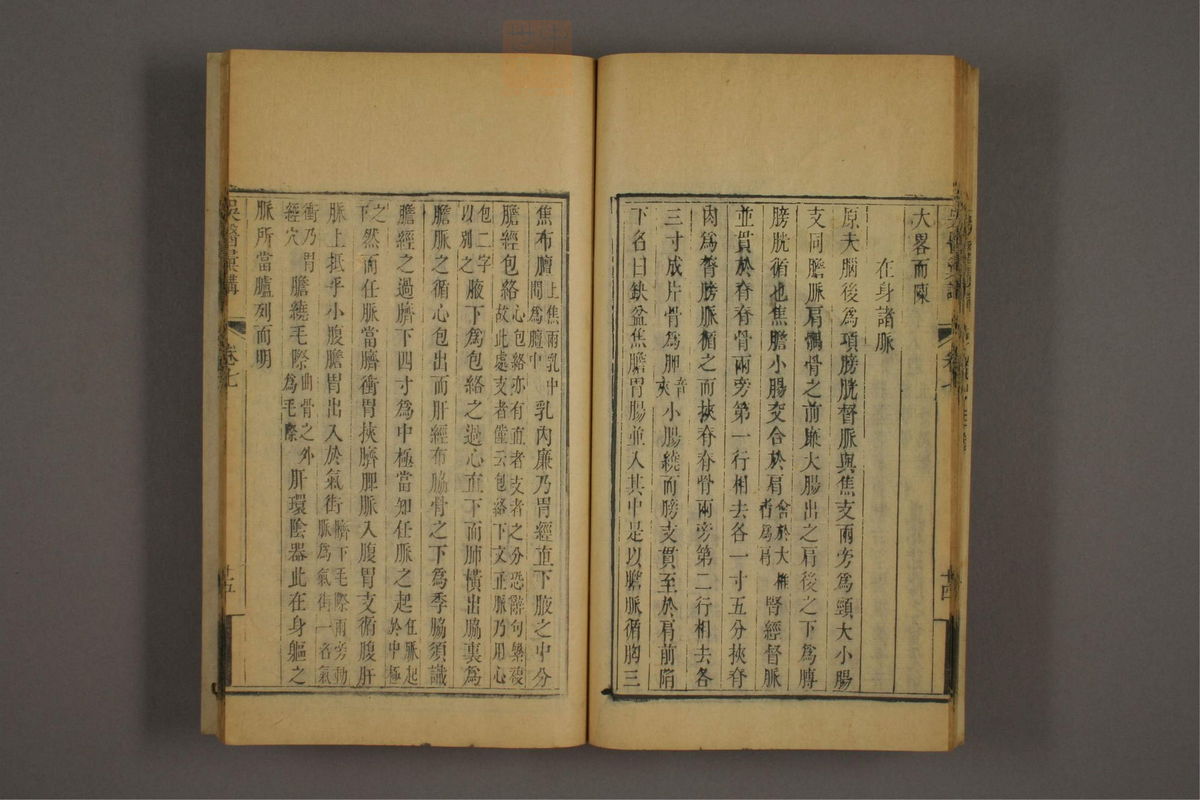 大畧而陳
在身諸脈
原夫腦後爲項膀胱督脈與焦支兩旁爲頸大小腸
支同膽脈肩髃骨之前廉大腸出之肩後之下爲膊
膀胱循也焦膽小腸交合於肩會於大椎者爲肩腎經督脈
並貫於脊脊骨兩旁第一行相去各一寸五分挾脊
肉爲膂膀脈循之而挾脊脊骨兩旁第二行相去各
三寸成片骨爲胛音夾小腸繞而膀支貫至於肩前陷
下名曰缺盆焦膽胃腸並入其中是以膽脈循胸三
焦布膻上焦兩乳中間爲膻中乳內廉乃胃經直下腋之中分
膽經包絡心包絡亦有直者支者之分恐辭句繁複故此處支者僅云包絡下文正脈乃用心
包二字以別之腋下爲包絡之過心直下而肺橫出脇裏爲
膽脈之循心包出而肝經布脇骨之下爲季脇須識
膽經之過臍下四寸爲中極當知任脈之起任脈起於中極
之下然而任脈當臍衝胃挾臍脾脈入腹胃支循腹肝
脈上抵乎小腹膽胃出入於氣街臍下毛際兩旁動脈爲氣街一名氣
衝乃胃經穴膽繞毛際曲骨之外爲毛際肝環陰器此在身軀之
脈所當臚列而明
吳醫彙講
卷七
十五
卷七
十四